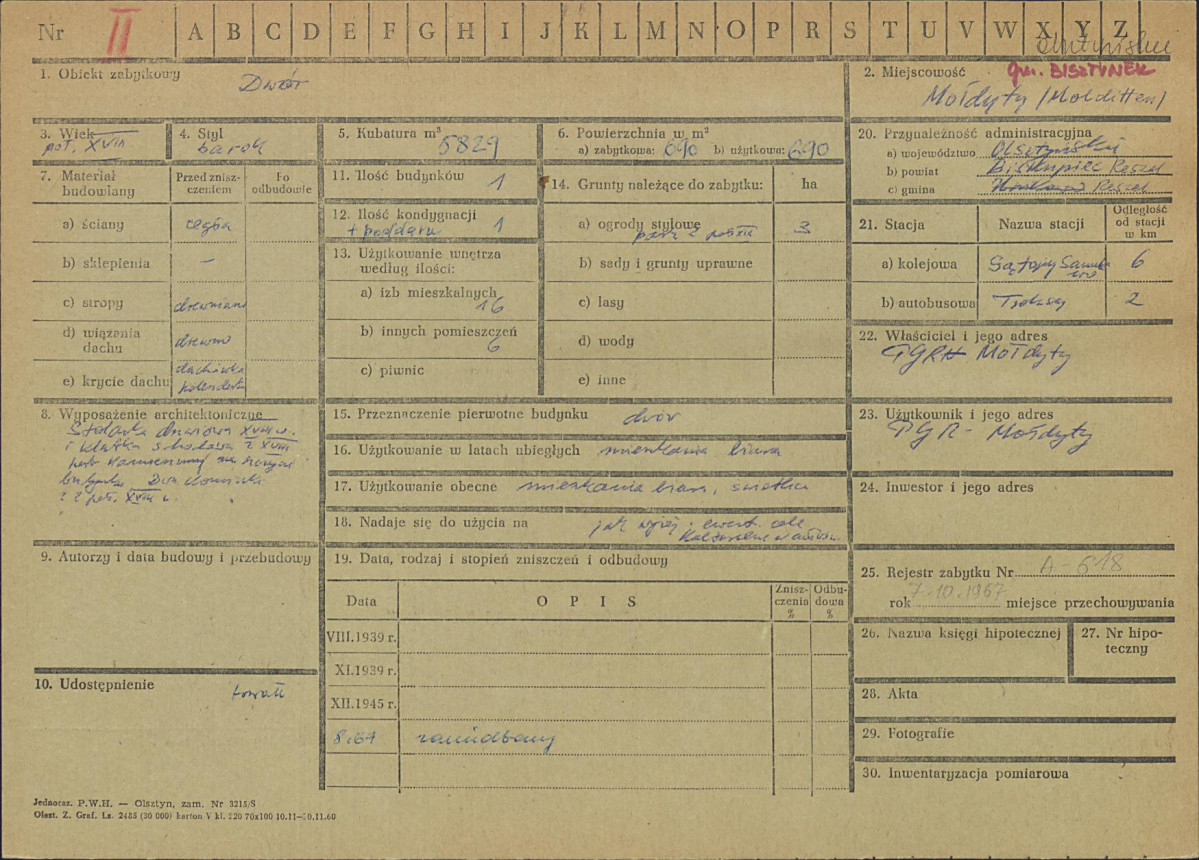 Nr II A B C D E F G H I J K L M N O P R S T U V W X Y Z
1. Obiekt zabytkowy
Dwór
2. Miejscowość gm. BISZTYNEK
Mołdyty (Molditten)
3. Wiek
poł. XVIII
4. Styl
barok
5. Kubatura m³
5829
6. Powierzchnia w m²
a) zabytkowa: 690 b) użytkowa: 690
20. Przynależność administracyjna
a) województwo Olsztyński
b) powiat Biskupiec Reszel
c) gmina Reszel
7. Materiał budowlany
Przed zniszczeniem
Po odbudowie
a) ściany cegła
b) sklepienia –
c) stropy drewniane
d) wiązania dachu drewno
e) krycie dachu dachówka
holenderk
11. Ilość budynków 1
12. Ilość kondygnacji 1
+ poddasze
13. Użytkowanie wnętrza
według ilości:
a) izb mieszkalnych
16
b) innych pomieszczeń
6
c) piwnic
14. Grunty należące do zabytku: ha
a) ogrody stylowe 3
park z
b) sady i grunty uprawne
c) lasy
d) wody
e) inne
21. Stacja
Nazwa stacji
Odległość
od stacji
w km
a) kolejowa Sątopy Samulewo 6
b) autobusowa 2
22. Właściciel i jego adres
PGRH Mołdyty
8. Wyposażenie architektoniczne
Stolarka drzwiowa XVIII w.
i klatka schodowa z XVIII
Dwa kominki
z 2 poł. XVIII w.
15. Przeznaczenie pierwotne budynku dwór
16. Użytkowanie w latach ubiegłych mieszkania biura
17. Użytkowanie obecne mieszkania biura, świetlica
18. Nadaje się do użycia na jak wyżej, ewent. cele
kulturalne
23. Użytkownik i jego adres
PGR - Mołdyty
24. Inwestor i jego adres
9. Autorzy i data budowy i przebudowy
10. Udostępnienie
19. Data, rodzaj i stopień zniszczeń i odbudowy
Data
O P I S
Zniszczenia
%
Odbudowa
%
VIII.1939 r.
XI.1939 r.
XII.1945 r.
8.67 zaniedbany
25. Rejestr zabytku Nr A-618
rok 7.10.1967 miejsce przechowywania
26. Nazwa księgi hipotecznej
27. Nr hipoteczny
28. Akta
29. Fotografie
30. Inwentaryzacja pomiarowa
Jednoraz. P.W.H. — Olsztyn, zam. Nr 3215/S
Olszt. Z. Graf. Lz. 2485 (30 000) karton V kl. 220 70x100 10.11—30.11.60